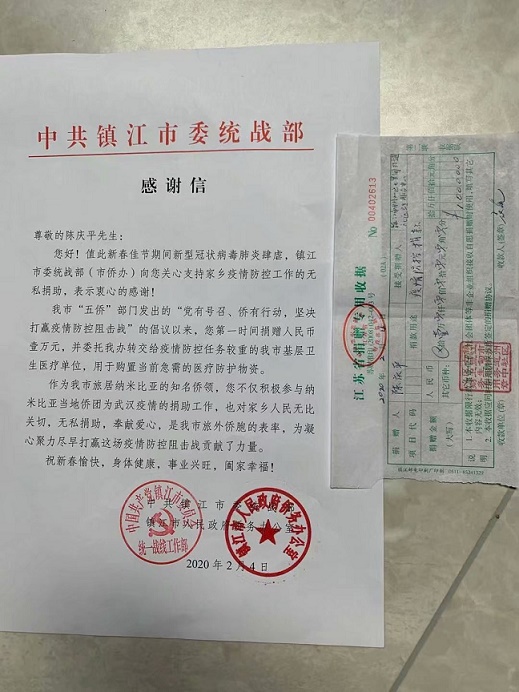 中共镇江市委统战部
感谢信
尊敬的陈庆平先生：
您好！值此新春佳节期间新型冠状病毒肺炎肆虐，镇江
市委统战部（市侨办）向您关心支持家乡疫情防控工作的无
私捐助，表示衷心的感谢！
我市“五侨”部门发出的“党有号召、侨有行动，坚决
打赢疫情防控阻击战”的倡议以来，您第一时间捐赠人民币
壹万元，并委托我办转交给疫情防控任务较重的我市基层卫
生医疗单位，用于购置当前急需的医疗防护物资。
作为我市旅居纳米比亚的知名侨领，您不仅积极参与纳
米比亚当地侨团为武汉疫情的捐助工作，也对家乡人民无比
关切，无私捐助，奉献爱心，是我市旅外侨胞的表率，为凝
心聚力尽早打赢这场疫情防控阻击战贡献了力量。
祝新春愉快，身体健康，事业兴旺，阖家幸福！
中共镇江市委统战部
镇江市人民政府侨务办公室
2020年2月4日
中国共产党镇江市委员会
统一战线工作部
镇江市人民政府侨务办公室
江苏省捐赠专用收据
№ 00402613
捐赠人
接受捐赠人
捐款用途
疫情防控捐款
捐赠金额
（大写）
人民币
其它币种：
说明
收款单位（章）
收款人（签章）